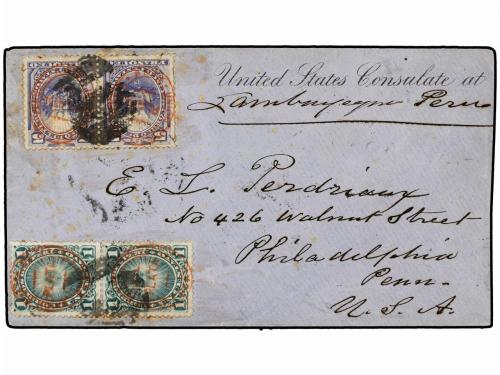 United States Consulate at
Lambayeque Peru
E L Perdriaux
No 426 Walnut Street
Philadelphia
Penn-
U. S. A.